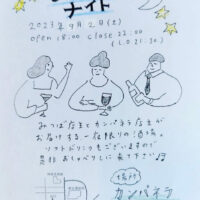 ナイト
2023年9月2日(土)
open 18:00 close 22:00
(L.O 21:30)
みつばち店主とカンパネラ店主が
お届けする一夜限りの酒場。
ソフトドリンクもございますので
是非おしゃべりしに来て下さい
場所
カンパネラ